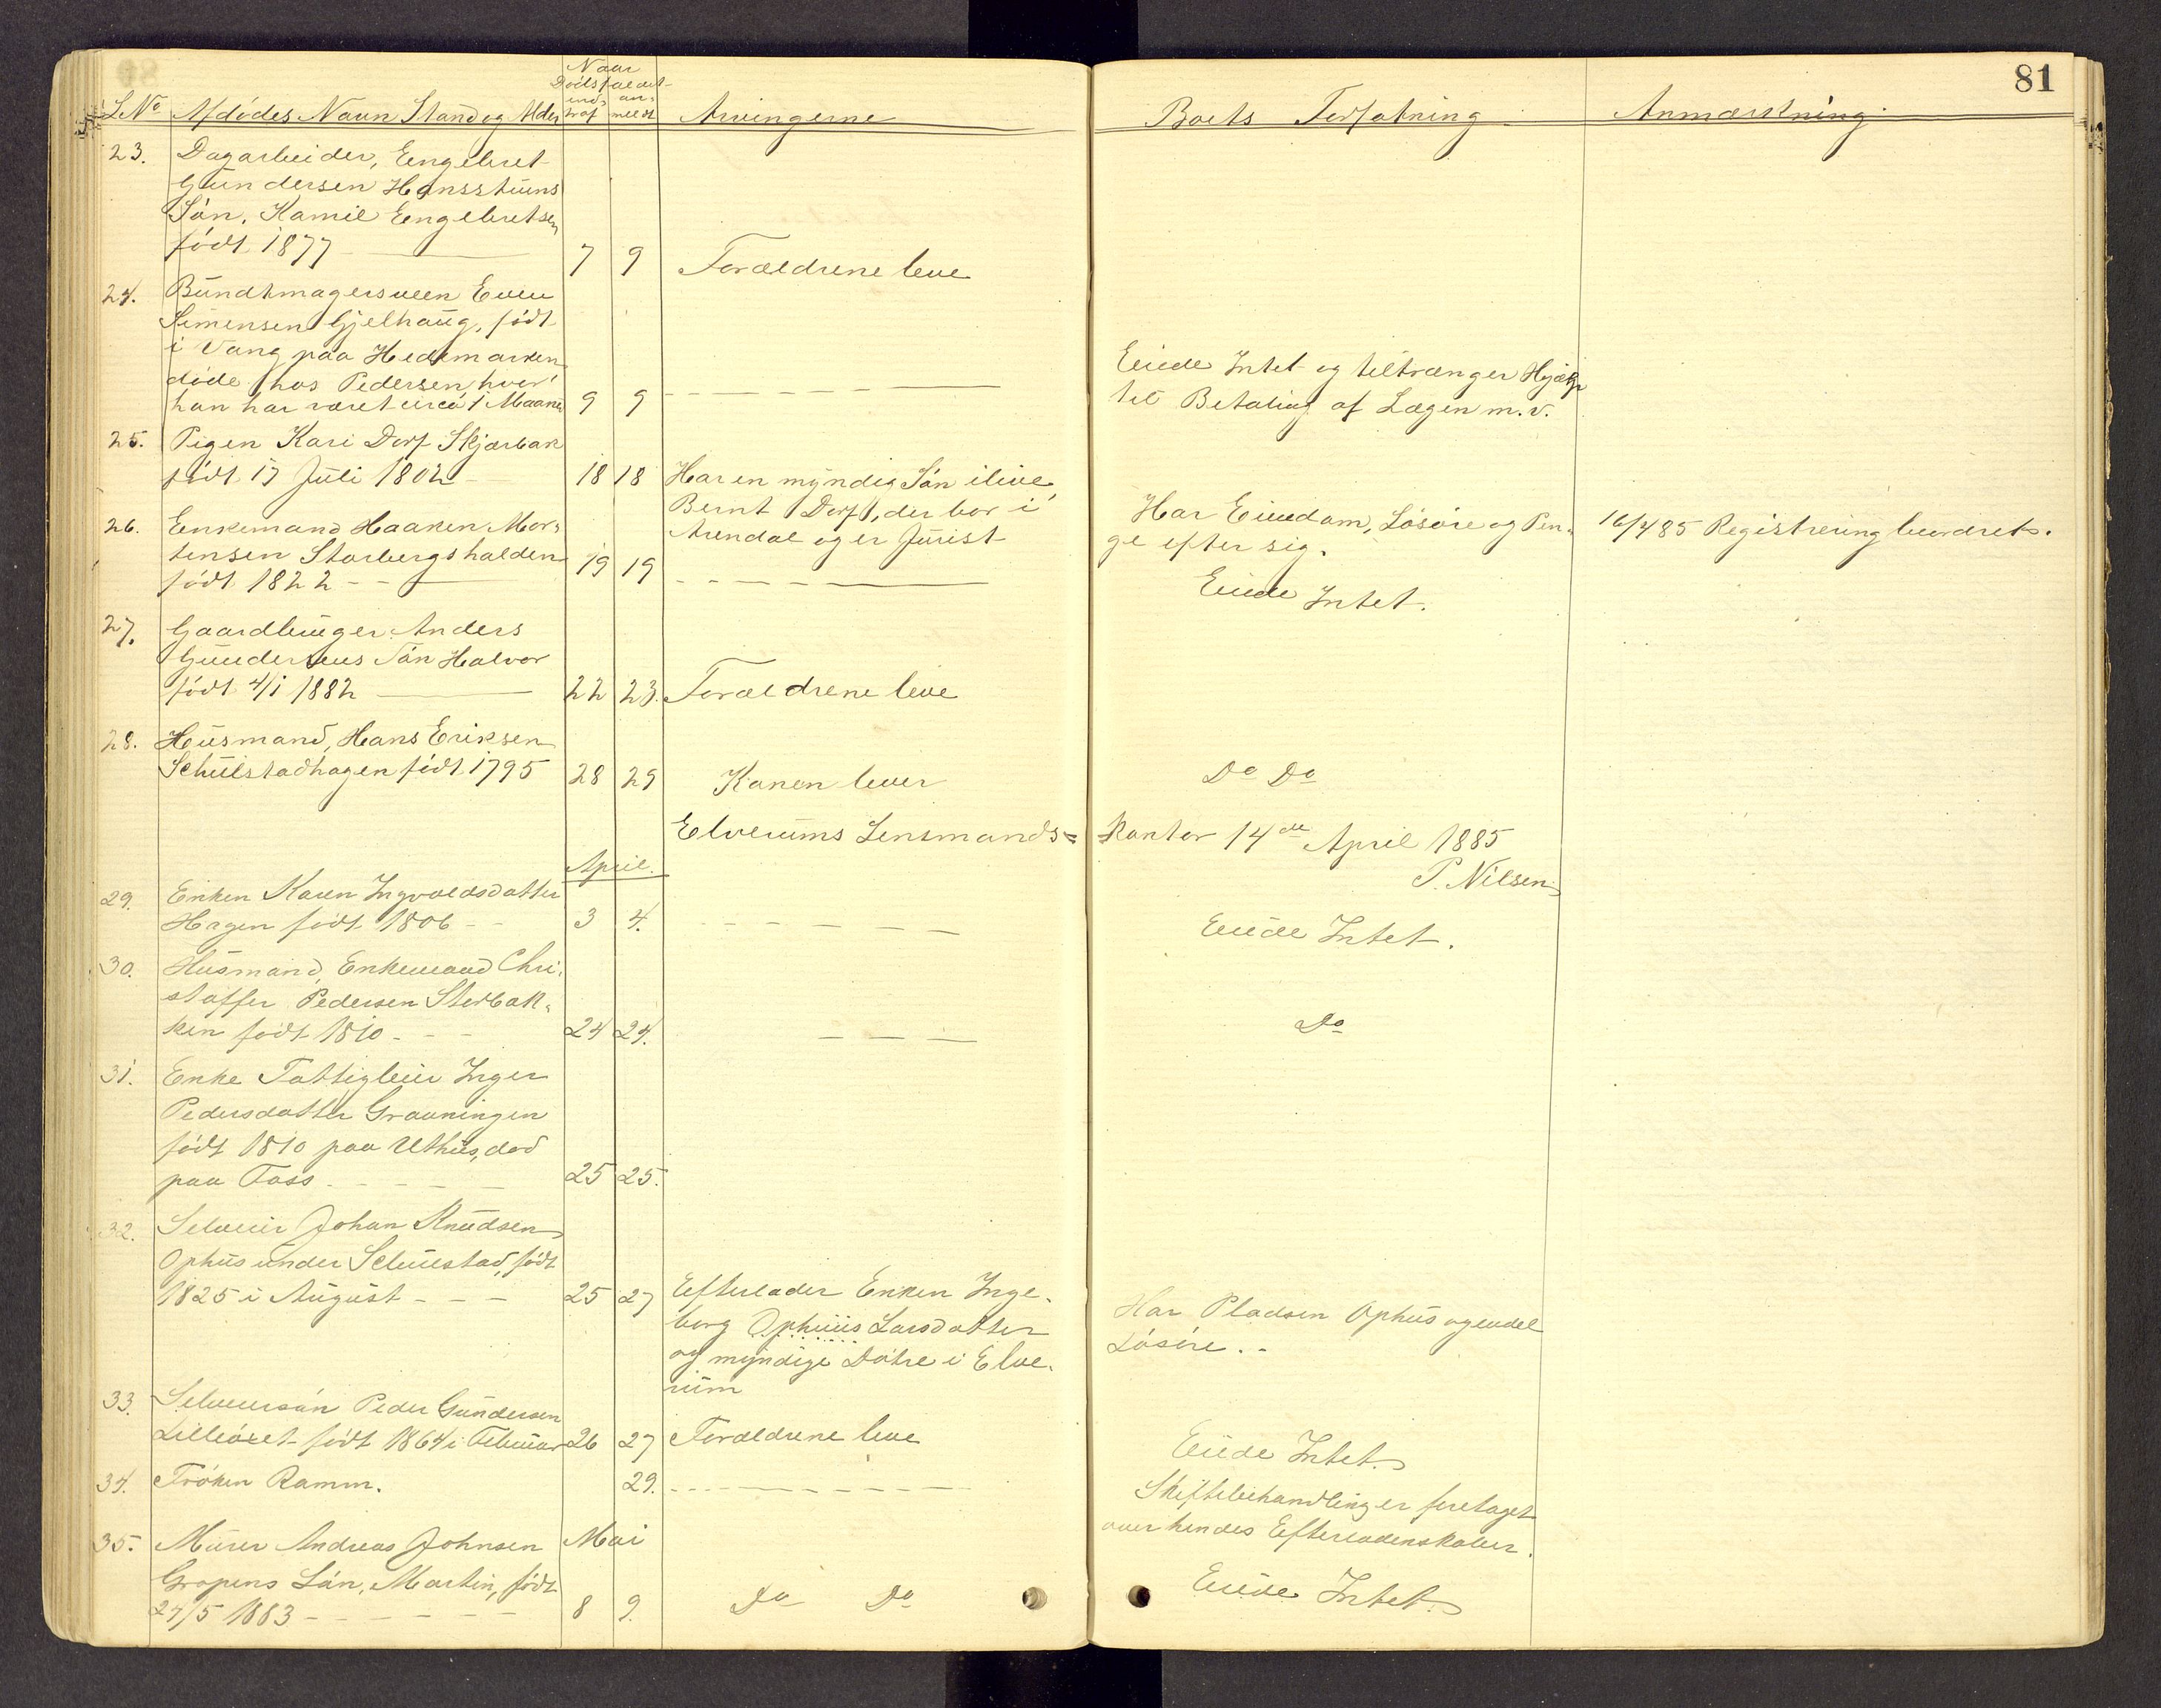 81
L.No Afdödes Navn Stand og Alder
Naar Dödsfaldet
ind- traf an- meldt
Arvingerne
Boets Forfatning
Anmærkning
23. Dagarbeider, Engebret
Gundersen Hansstuens
Sön, Kamil Engebretsen
född 1877 7 9 Forældrene leve
24. Bundtmagersveen Even
Simensen Gjelhaug, född
i Vang paa Hedemarken
döde hos Pedersen, hvor
han har været circa 1 Maaned 9 9
Eiede Intet og tiltrænger Hjælp
til Betaling af Lægen m.v.
25. Pigen Kari Dorf Skjærbak
född 17 Juli 1802 18 18 Har en myndig Sön ilive,
Bernt Dorf, der bor i
Arendal og er Jurist
Har Eiendom, Lösöre og Pen-
ge efter sig.
16/4 85 Registrering beordret.
26. Enkemand Haaken Mor-
tensen Storbergshalden
född 1822 19 19
Eiede Intet.
27. Gaardbruger Anders
Gundersens Sön Halvor
född 4/1 1882 22 23. Forældrene leve
28. Husmand, Hans Eriksen
Schulstadhagen född 1795 28 29 Konen lever
Do Do
Elverums Lensmands-kontor 14de April 1885
P. Nilsen
April.
29. Enken Karen Ingvoldsdatter
Hagen född 1806 3 4.
Eiede Intet.
30. Husmand, Enkemand Chri-
stoffer Pedersen Sterbak-
ken född 1810 24 24.
Do
31. Enke Fattiglem Inger
Pedersdatter Gravningen
född 1810 paa Uthus, död
paa Foss 25 25.
32. Selveier Johan Knudsen
Ophus under Schulstad, född
1825 i August 25 27 Efterlader Enken Inge-
borg Ophuus Larsdatter
og myndige Dötre i Elve-
rum
Har Pladsen Ophus og endel
Lösöre.
33. Selveiersön Peder Gundersen
Lilleöset född 1864 i Februar 26 27 Forældrene leve
Eiede Intet.
34. Fröken Ramm. 29.
Skiftebehandling er foretaget
over hendes Efterladenskaber.
35. Murer Andreas Johnsen Mai
Gropens Sön, Martin, född
24/5 1883 8 9. Do Do
Eiede Intet.